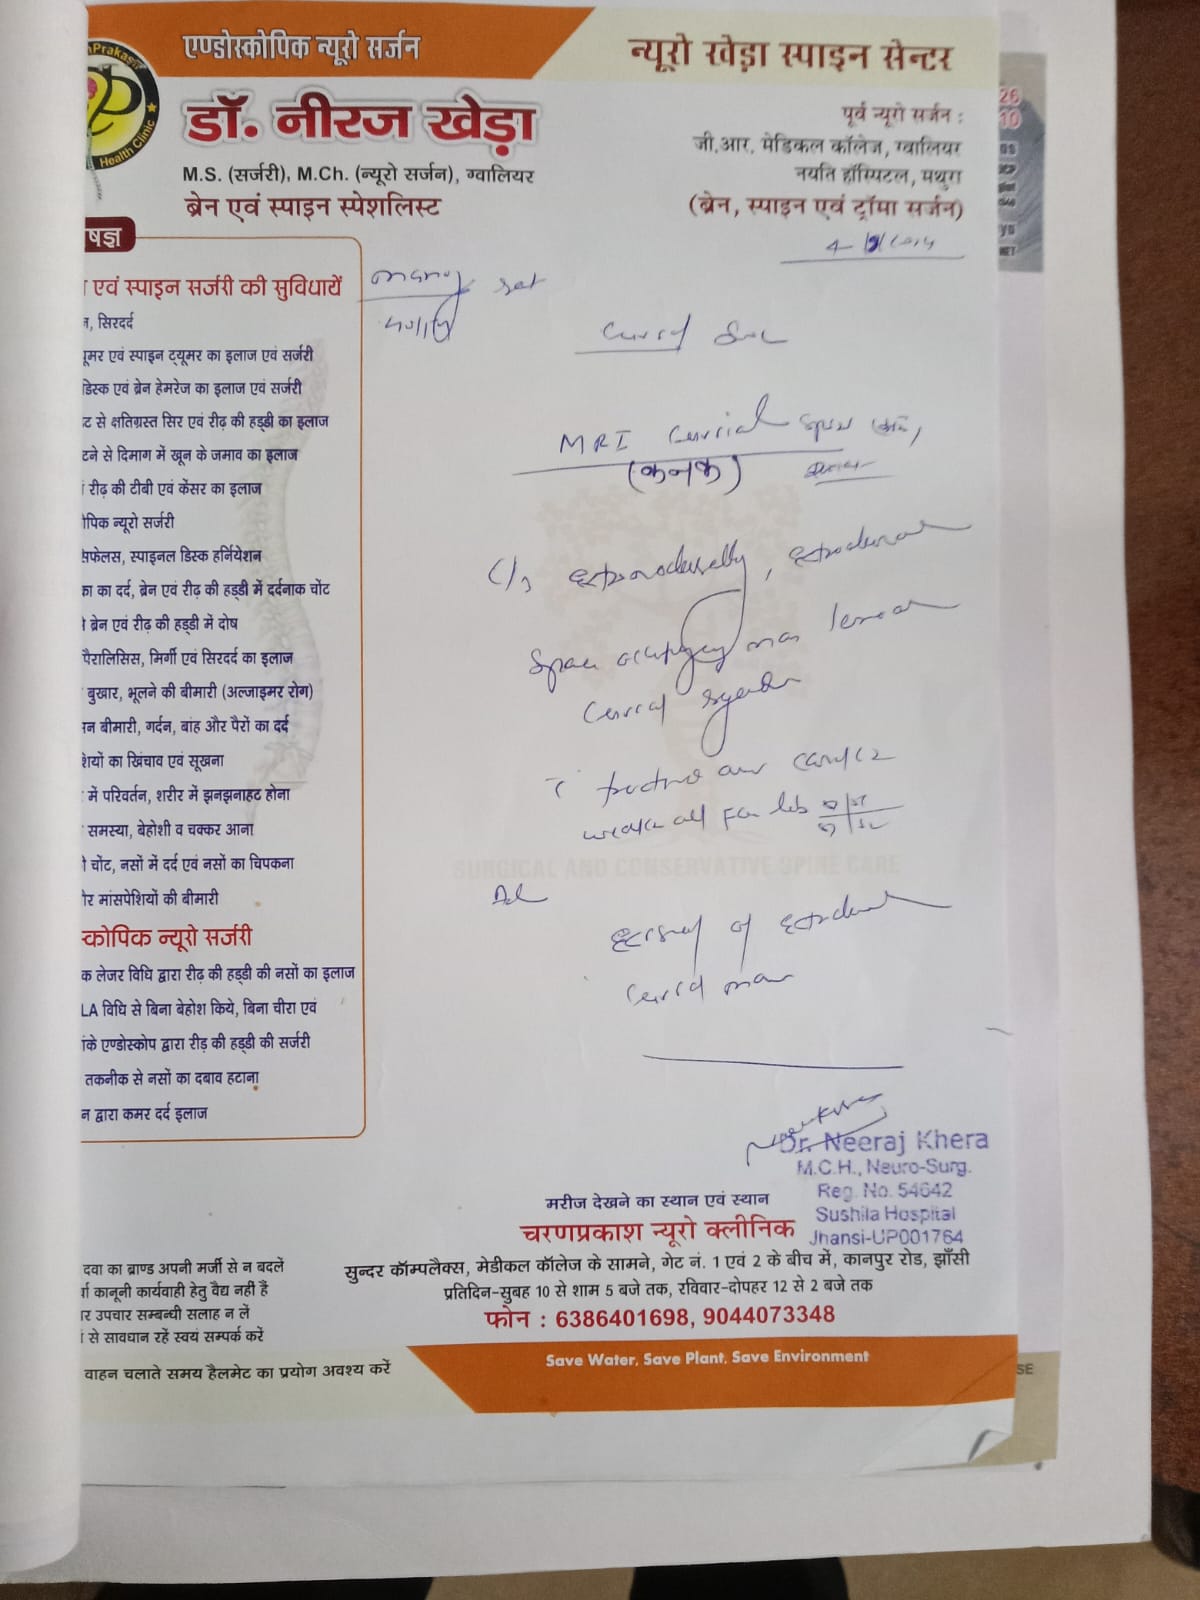 एण्डोस्कोपिक न्यूरो सर्जन
न्यूरो खेड़ा स्पाइन सेन्टर
Prakash
Health Clinic
डॉ. नीरज खेड़ा
M.S. (सर्जरी), M.Ch. (न्यूरो सर्जन), ग्वालियर
ब्रेन एवं स्पाइन स्पेशलिस्ट
पूर्व न्यूरो सर्जन :
जी.आर. मेडिकल कॉलेज, ग्वालियर
नयति हॉस्पिटल, मथुरा
(ब्रेन, स्पाइन एवं ट्रॉमा सर्जन)
षज्ञ
एवं स्पाइन सर्जरी की सुविधायें
न, सिरदर्द
यूमर एवं स्पाइन ट्यूमर का इलाज एवं सर्जरी
डिस्क एवं ब्रेन हेमरेज का इलाज एवं सर्जरी
ट से क्षतिग्रस्त सिर एवं रीढ़ की हड्डी का इलाज
टने से दिमाग में खून के जमाव का इलाज
रीढ़ की टीबी एवं केंसर का इलाज
ोपिक न्यूरो सर्जरी
सेफेलस, स्पाइनल डिस्क हर्नियेशन
का का दर्द, ब्रेन एवं रीढ़ की हड्डी में दर्दनाक चोंट
ब्रेन एवं रीढ़ की हड्डी में दोष
पैरालिसिस, मिर्गी एवं सिरदर्द का इलाज
बुखार, भूलने की बीमारी (अल्जाइमर रोग)
न बीमारी, गर्दन, बांह और पैरों का दर्द
शियों का खिंचाव एवं सूखना
में परिवर्तन, शरीर में झनझनाहट होना
समस्या, बेहोशी व चक्कर आना
चोंट, नसों में दर्द एवं नसों का चिपकना
ौर मांसपेशियों की बीमारी
स्कोपिक न्यूरो सर्जरी
क लेजर विधि द्वारा रीढ़ की हड्डी की नसों का इलाज
LA विधि से बिना बेहोश किये, बिना चीरा एवं
ांके एण्डोस्कोप द्वारा रीड़ की हड्डी की सर्जरी
तकनीक से नसों का दबाव हटाना
न द्वारा कमर दर्द इलाज
MRI Cervical Spine
(कनक)
Extradural
Space occupying mass
Cervical
SURGICAL AND CONSERVATIVE SPINE CARE
Adv
of Extradural
Cervical mass
Dr. Neeraj Khera
M.C.H., Neuro-Surg.
Reg. No. 54642
Sushila Hospital
Jhansi-UP001764
मरीज देखने का स्थान एवं स्थान
चरणप्रकाश न्यूरो क्लीनिक
सुन्दर कॉम्पलैक्स, मेडीकल कॉलेज के सामने, गेट नं. 1 एवं 2 के बीच में, कानपुर रोड, झाँसी
प्रतिदिन-सुबह 10 से शाम 5 बजे तक, रविवार-दोपहर 12 से 2 बजे तक
फोन : 6386401698, 9044073348
दवा का ब्राण्ड अपनी मर्जी से न बदलें
कानूनी कार्यवाही हेतु वैद्य नहीं है
र उपचार सम्बन्धी सलाह न लें
से सावधान रहें स्वयं सम्पर्क करें
वाहन चलाते समय हैलमेट का प्रयोग अवश्य करें
Save Water, Save Plant, Save Environment